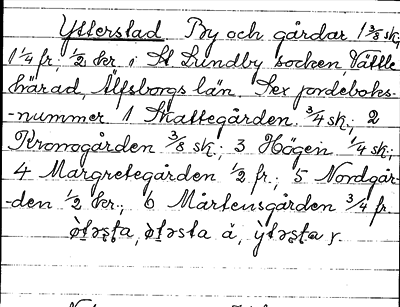 Ytterstad. By och gårdar 1 3/8 sk.,
1 1/4 fr., 1/2 kr. i St Lundby socken, Vättle
härad, Älfsborgs län. Sex jordeboks-
-nummer 1 Skattegården 3/4 sk.; 2
Kronogården 3/8 sk.; 3 Högen 1/4 sk.;
4 Margretegården 1/2 fr.; 5 Nordgår-
-den 1/2 kr.; 6 Mårtensgården 3/4 fr.